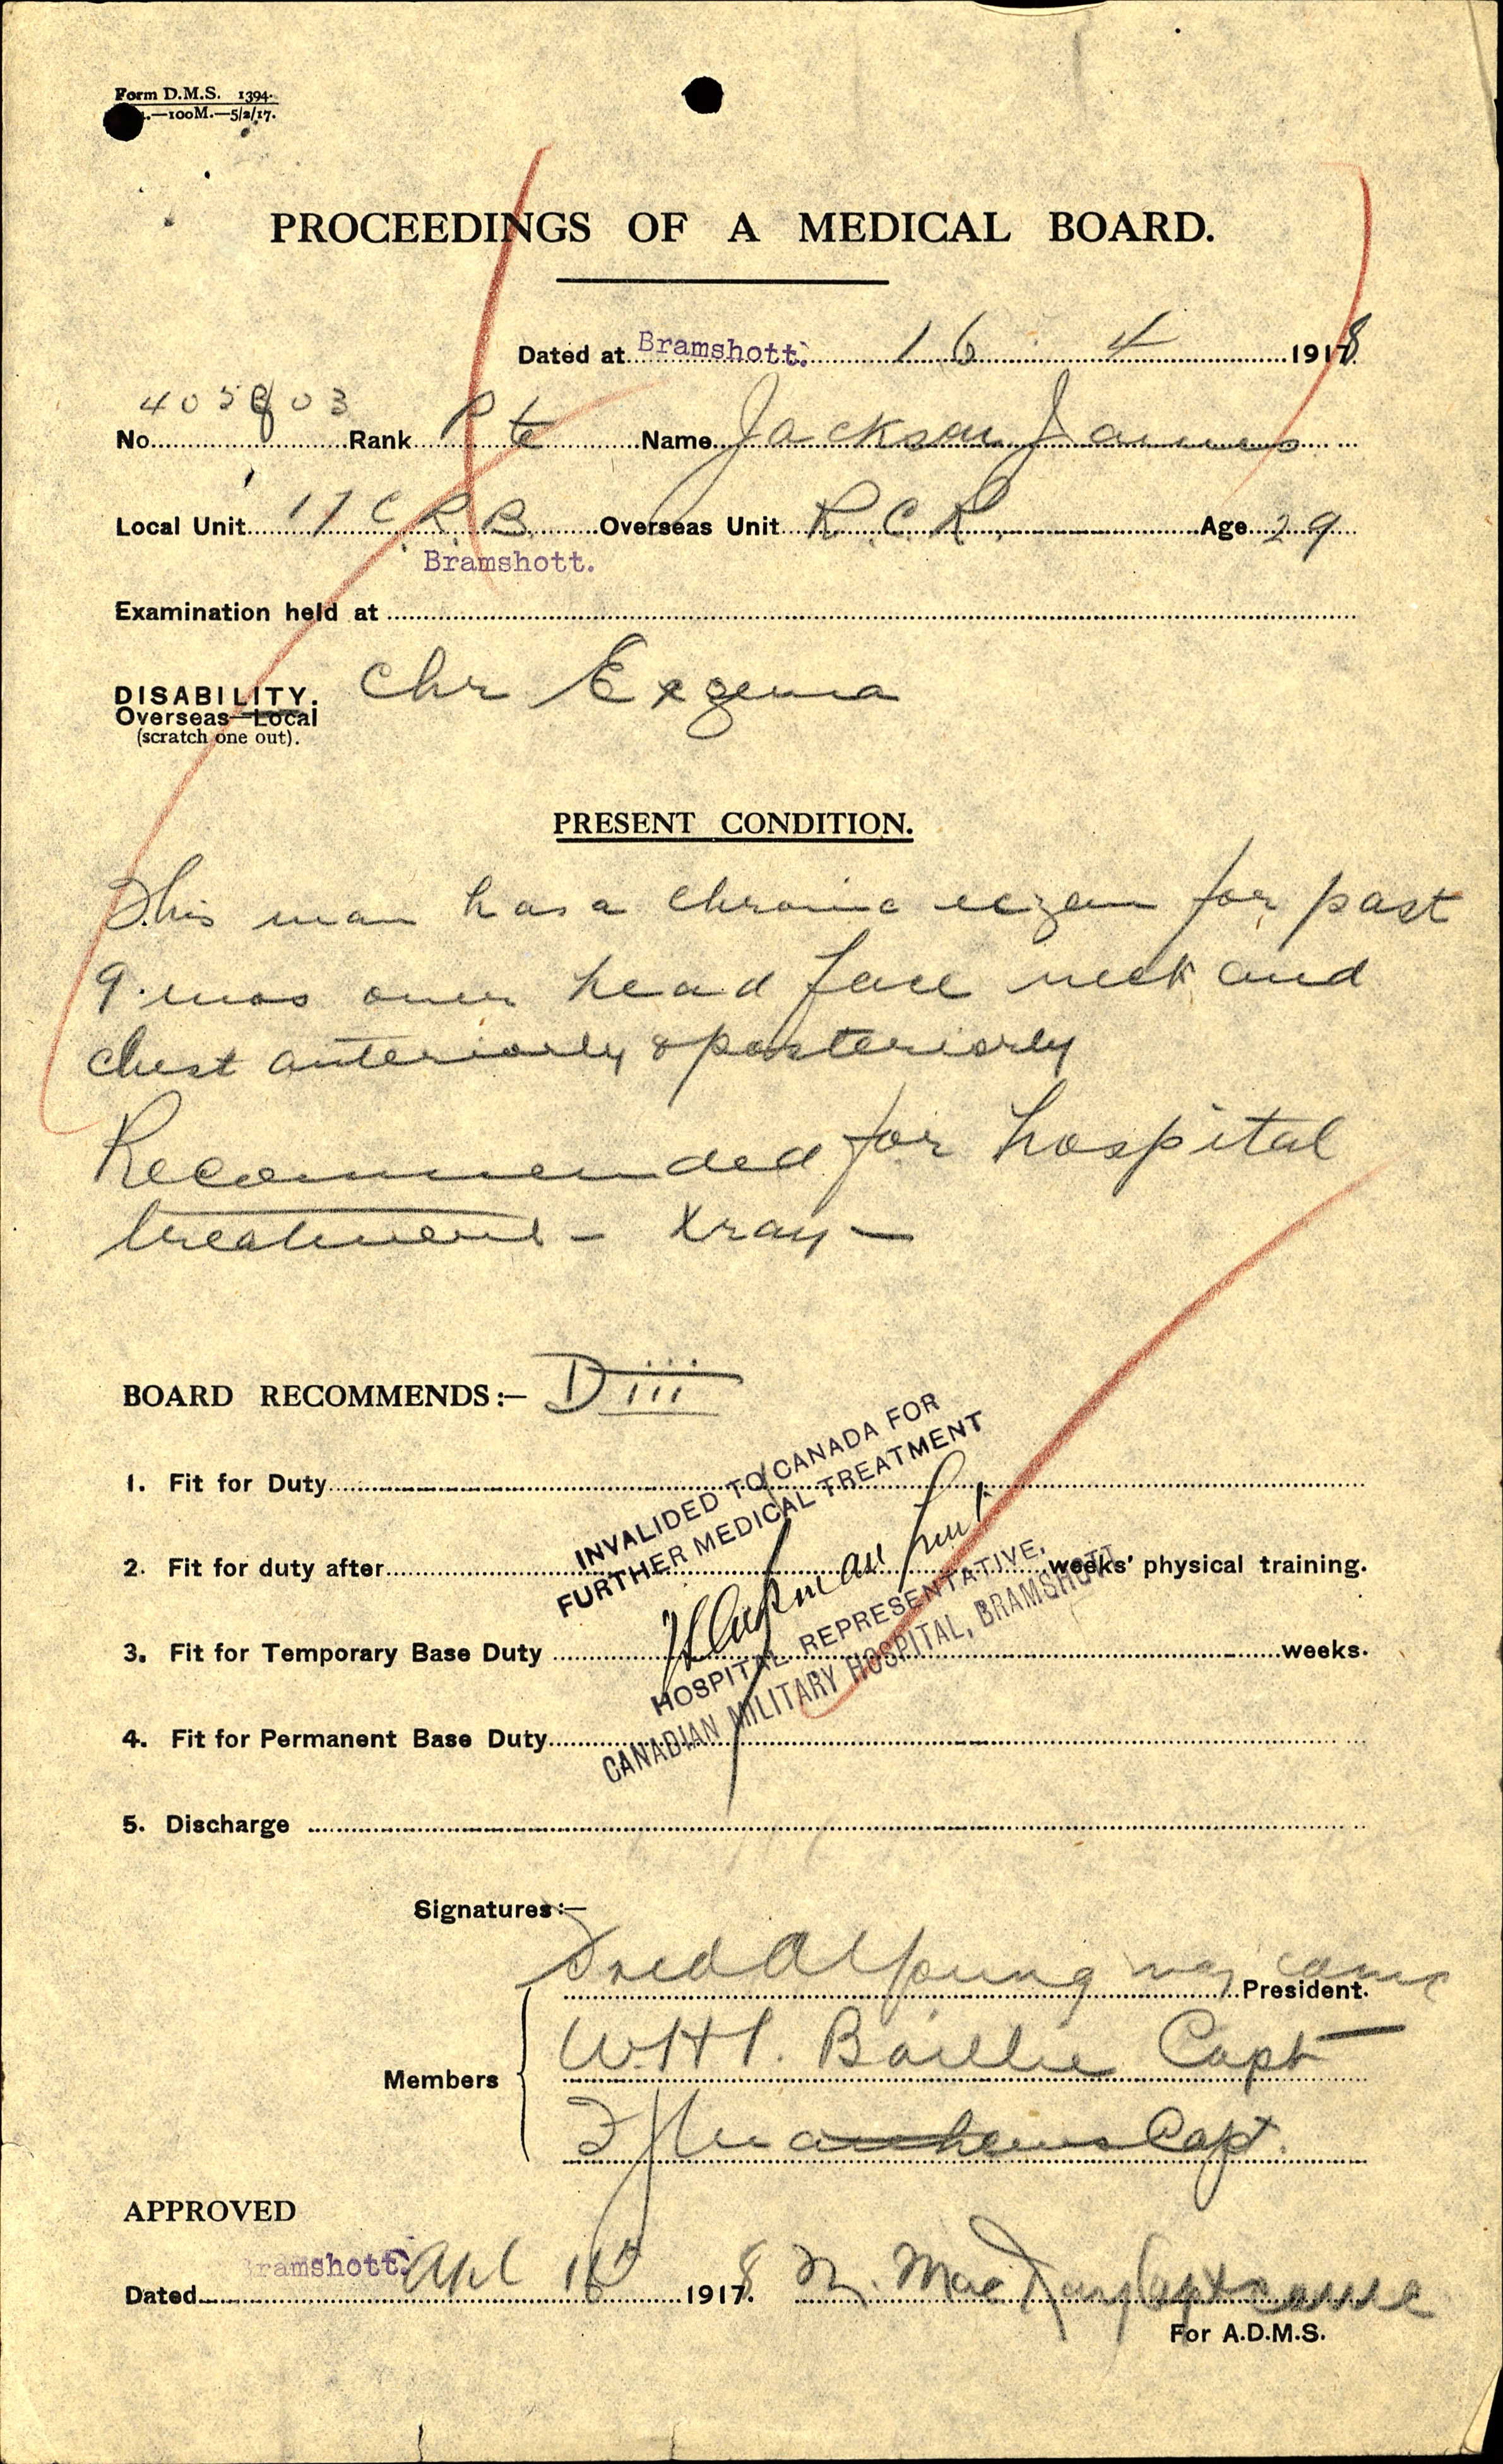 Form D.M.S. 1394.
—100M.—5/2/17.
PROCEEDINGS OF A MEDICAL BOARD.
Dated at Bramshott. 16 4 1918
No. 405803 Rank Pte Name Jackson James
Local Unit 17 C.R.B. Overseas Unit R.C.R. Age 29
Bramshott.
Examination held at
DISABILITY. Chr Exgema
Overseas—Local
(scratch one out).
PRESENT CONDITION.
This man has a chronic eczem for past
9. mos over head face neck and
chest anteriorly & posteriorly
Recommended for hospital
treatment – Xray –
BOARD RECOMMENDS:— D iii
INVALIDED TO CANADA FOR
FURTHER MEDICAL TREATMENT
1. Fit for Duty
2. Fit for duty after weeks' physical training.
HOSPITAL REPRESENTATIVE,
CANADIAN MILITARY HOSPITAL, BRAMSHOTT
3. Fit for Temporary Base Duty weeks.
4. Fit for Permanent Base Duty
5. Discharge
Signatures:—
Fred A Young maj camc President.
Members W.H.T. Baillie Capt
Capt.
APPROVED
Bramshott.
Dated Apl 16th 1918 N. Mac Capt camc
For A.D.M.S.